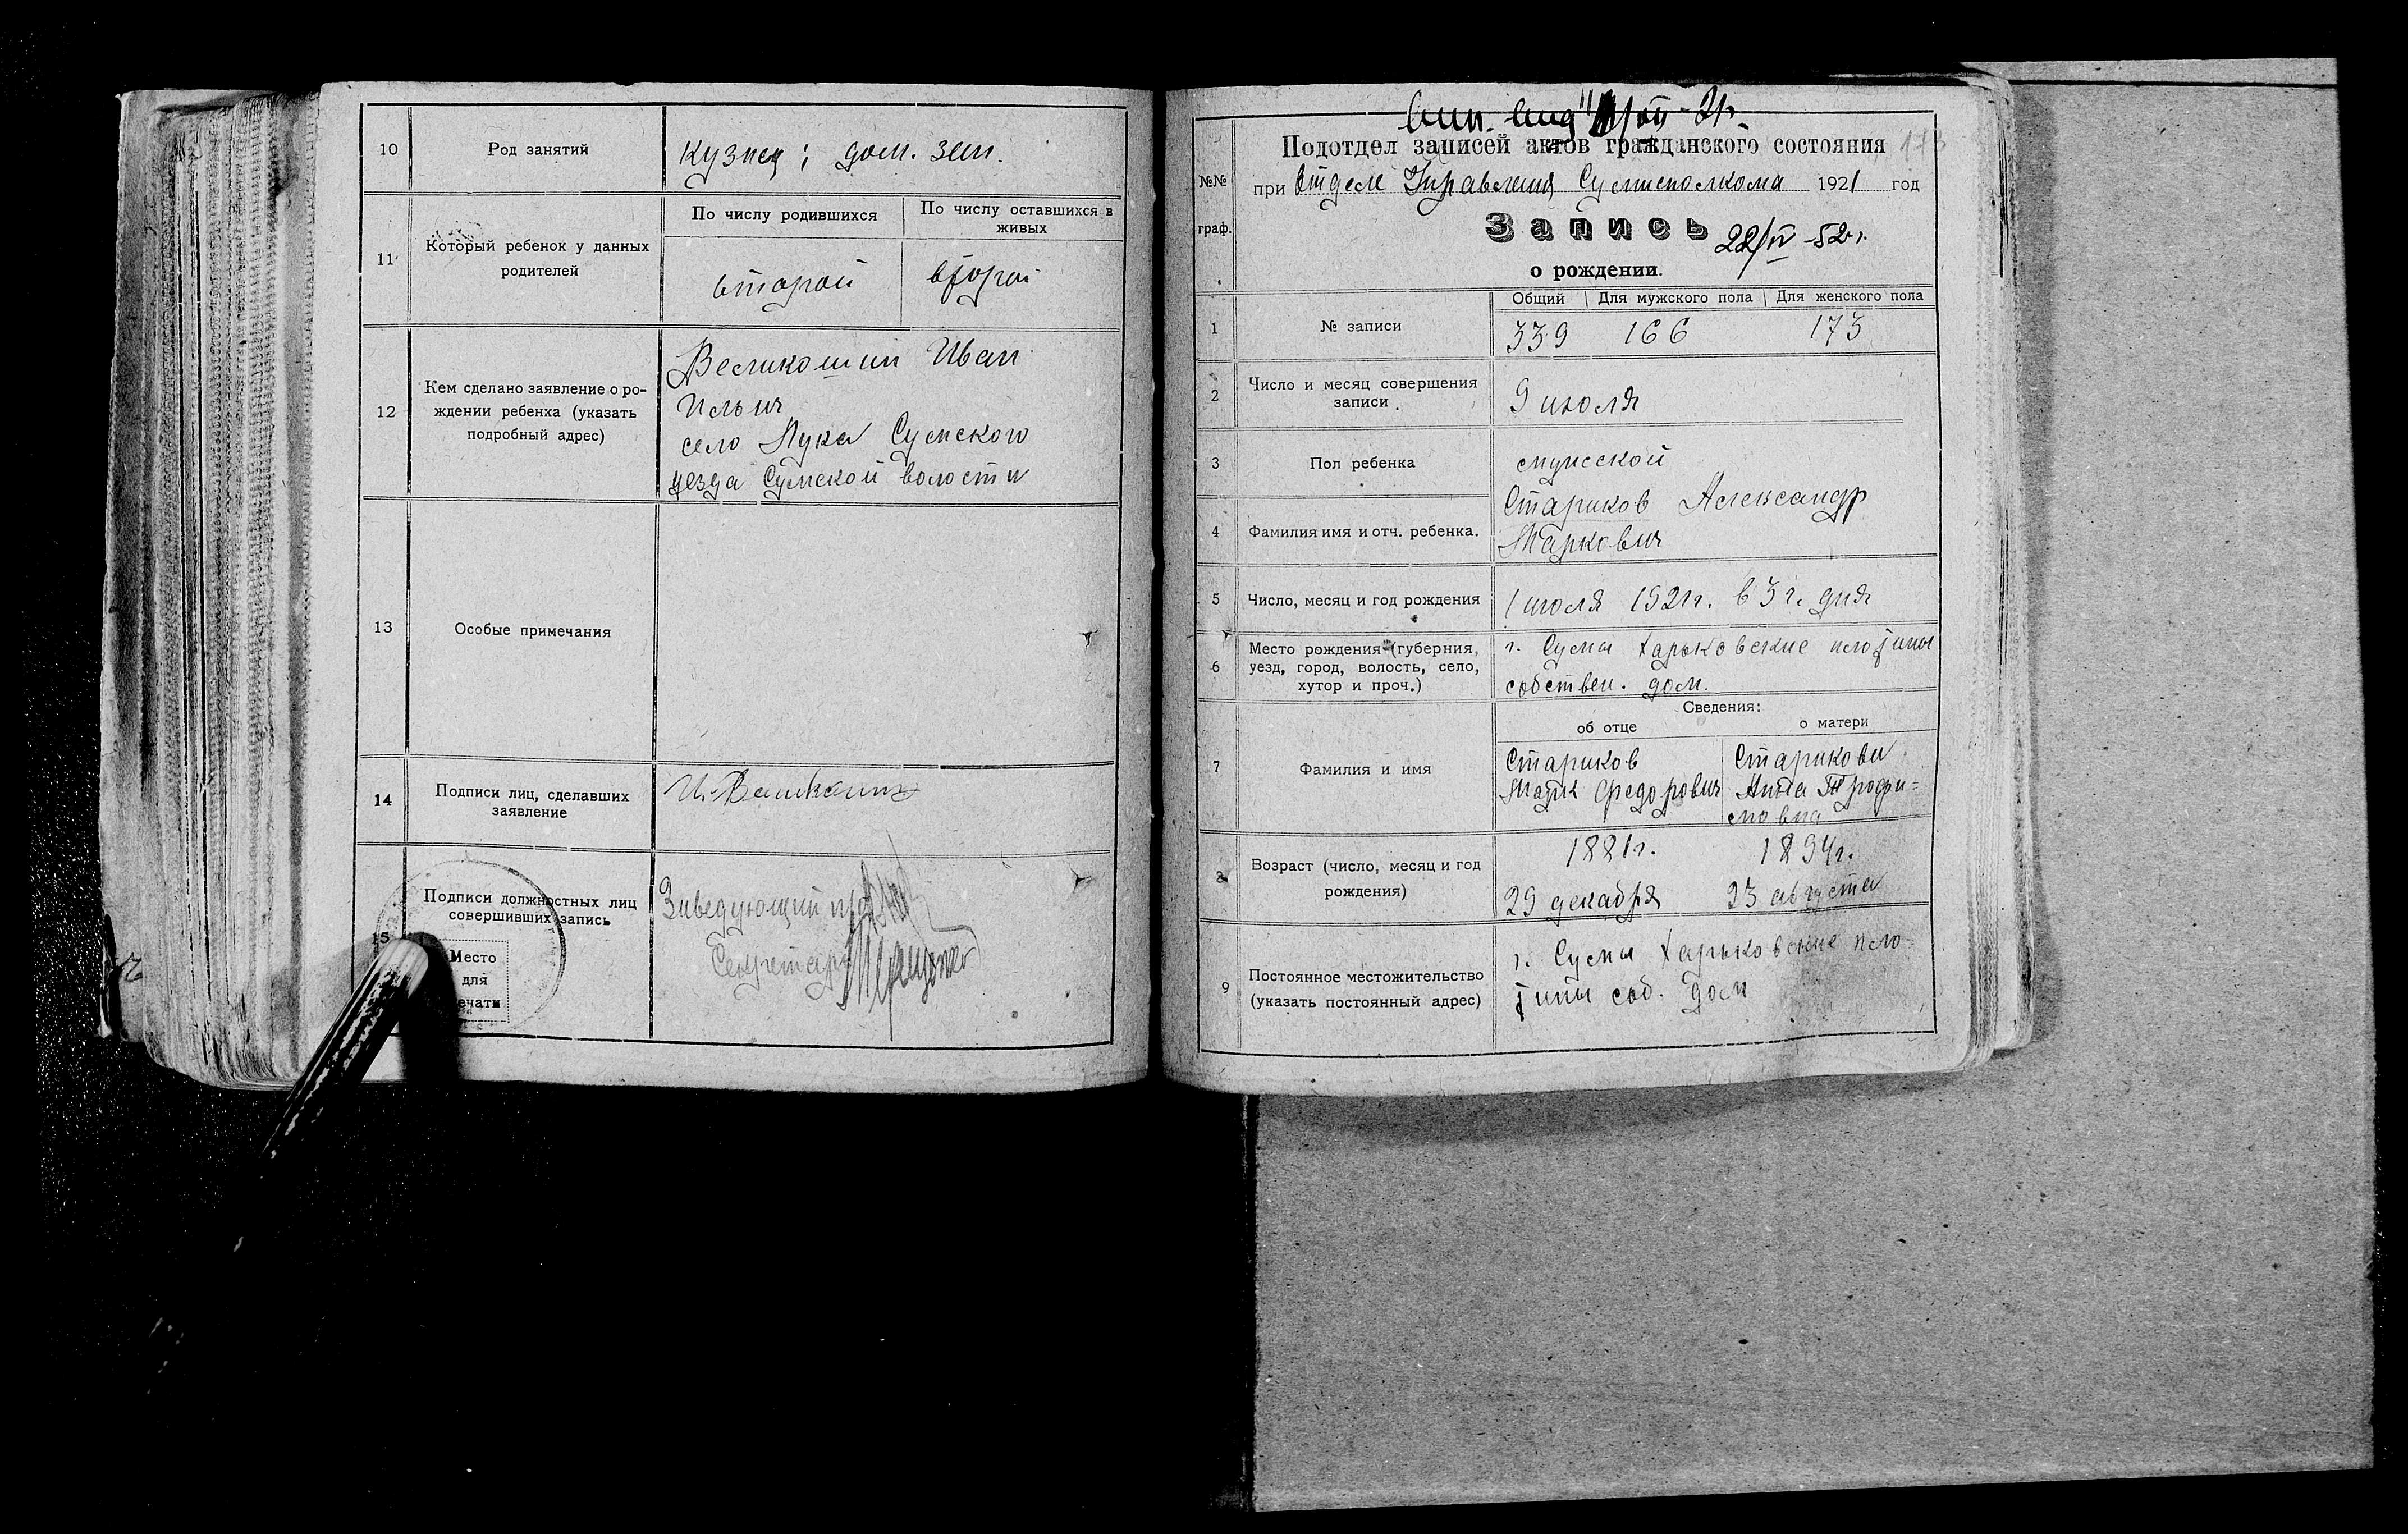 10 Род занятий кузнец; дом. зан.
11 Который ребенок у данных родителей
По числу родившихся
По числу оставшихся в живых
второй
второй
12 Кем сделано заявление о ро-
ждении ребенка (указать
подробный адрес)
Иван
Ильич
село Лука Сумского
уезда Сумской волости
13 Особые примечания
14 Подписи лиц, сделавших
заявление
15 Подписи должностных лиц
совершивших запись
Место
для
печати
Заведующий
Секретарь
№№
граф.
Подотдел записей актов гражданского состояния
при Отделе Управления Сумисполкома 1921 год
Запись
22/IV-52г.
о рождении.
Общий Для мужского пола Для женского пола
1 № записи 339 166 173
2 Число и месяц совершения
записи
9 июля
3 Пол ребенка мужской
4 Фамилия имя и отч. ребенка.
Стариков Александр
Маркович
5 Число, месяц и год рождения 1 июля 1921г. в 3 ч. дня
6 Место рождения (губерния,
уезд, город, волость, село,
хутор и проч.)
г. Сумы Харьковские
собствен. дом.
Сведения:
об отце о матери
7 Фамилия и имя
Стариков
Марк Федорович
Старикова
Анна Трофи=
мовна
8 Возраст (число, месяц и год
рождения)
1881г.
29 декабря
1894г.
23 августа
9 Постоянное местожительство
(указать постоянный адрес)
г. Сумы Харьковские
соб. дом